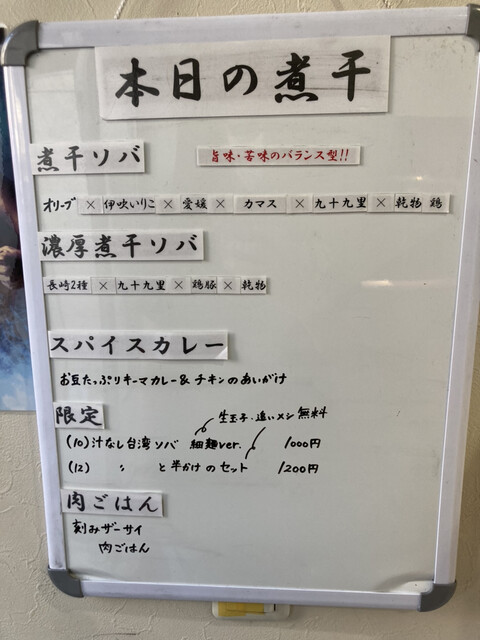 本日の煮干
煮干ソバ
旨味・苦味のバランス型!!
オリーブ × 伊吹いりこ × 愛媛 × カマス × 九十九里 × 乾物 鶏
濃厚煮干ソバ
長崎2種 × 九十九里 × 鶏豚 × 乾物
スパイスカレー
お豆たっぷりキーマカレー&チキンのあいがけ
限定
生玉子・追いメシ 無料
(10) 汁なし台湾ソバ 細麺ver. 1000円
(12) 〃 と半かけのセット 1200円
肉ごはん
刻みザーサイ
肉ごはん